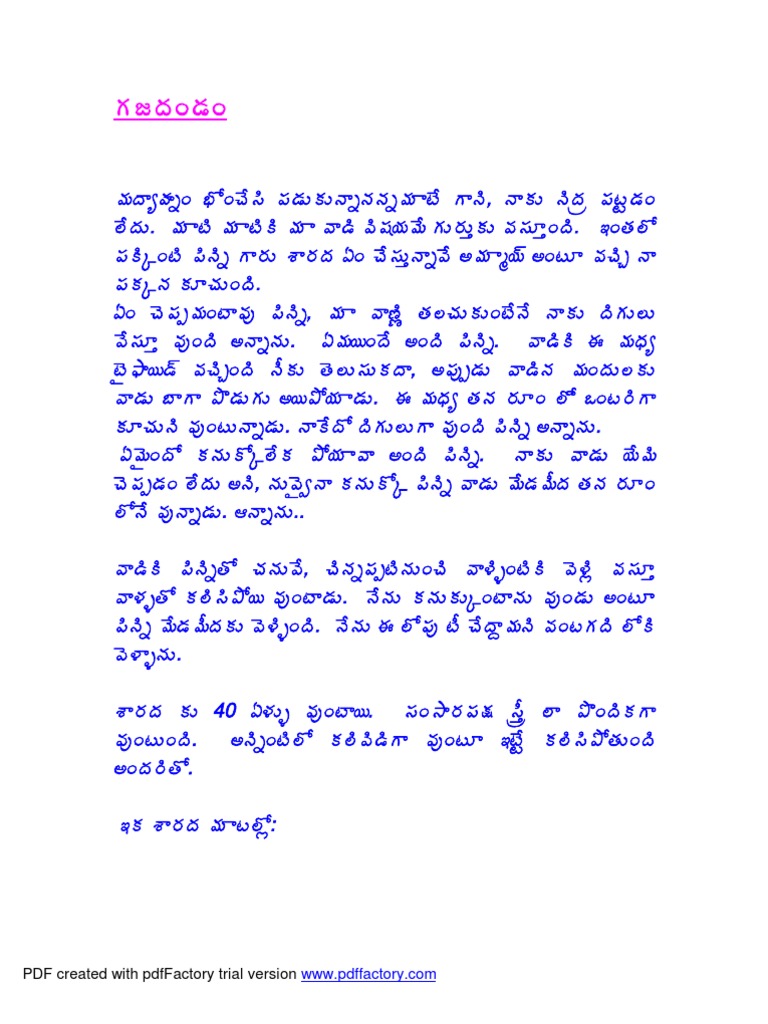 గజదండం
మద్యాహ్నం భోంచేసి పడుకున్నానన్నమాటే గాని, నాకు నిద్ర పట్టడం
లేదు. మాటి మాటికి మా వాడి విషయమే గుర్తుకు వస్తూంది. ఇంతలో
పక్కింటి పిన్ని గారు శారద ఏం చేస్తున్నావే అమ్మాయ్ అంటూ వచ్చి నా
పక్కన కూచుంది.
ఏం చెప్పమంటావు పిన్ని, మా వాణ్ణి తలచుకుంటేనే నాకు దిగులు
వేస్తూ వుంది అన్నాను. ఏమయిందే అంది పిన్ని. వాడికి ఈ మధ్య
టైఫాయిడ్ వచ్చింది నీకు తెలుసుకదా, అప్పుడు వాడిన మందులకు
వాడు బాగా పొడుగు అయిపోయాడు. ఈ మధ్య తన రూం లో ఒంటరిగా
కూచుని వుంటున్నాడు. నాకేదో దిగులుగా వుంది పిన్ని అన్నాను.
ఏమైందో కనుక్కోలేక పోయావా అంది పిన్ని. నాకు వాడు యేమి
చెప్పడం లేదు అని, నువ్వైనా కనుక్కో పిన్ని వాడు మేడమీద తన రూం
లోనే వున్నాడు. ఆన్నాను..
వాడికి పిన్నితో చనువే, చిన్నప్పటినుంచి వాళ్ళింటికి వెళ్లి వస్తూ
వాళ్ళతో కలిసిపోయి వుంటాడు. నేను కనుక్కుంటాను వుండు అంటూ
పిన్ని మేడమీదకు వెళ్ళింది. నేను ఈ లోపు టీ చేద్దామని వంటగది లోకి
వెళ్ళాను.
శారద కు 40 ఏళ్ళు వుంటాయి. సంసారపక్ష స్త్రీ లా పొందికగా
వుంటుంది. అన్నింటిలో కలివిడిగా వుంటూ ఇట్టే కలిసిపోతుంది
అందరితో.
ఇక శారద మాటల్లో:
PDF created with pdfFactory trial version www.pdffactory.com